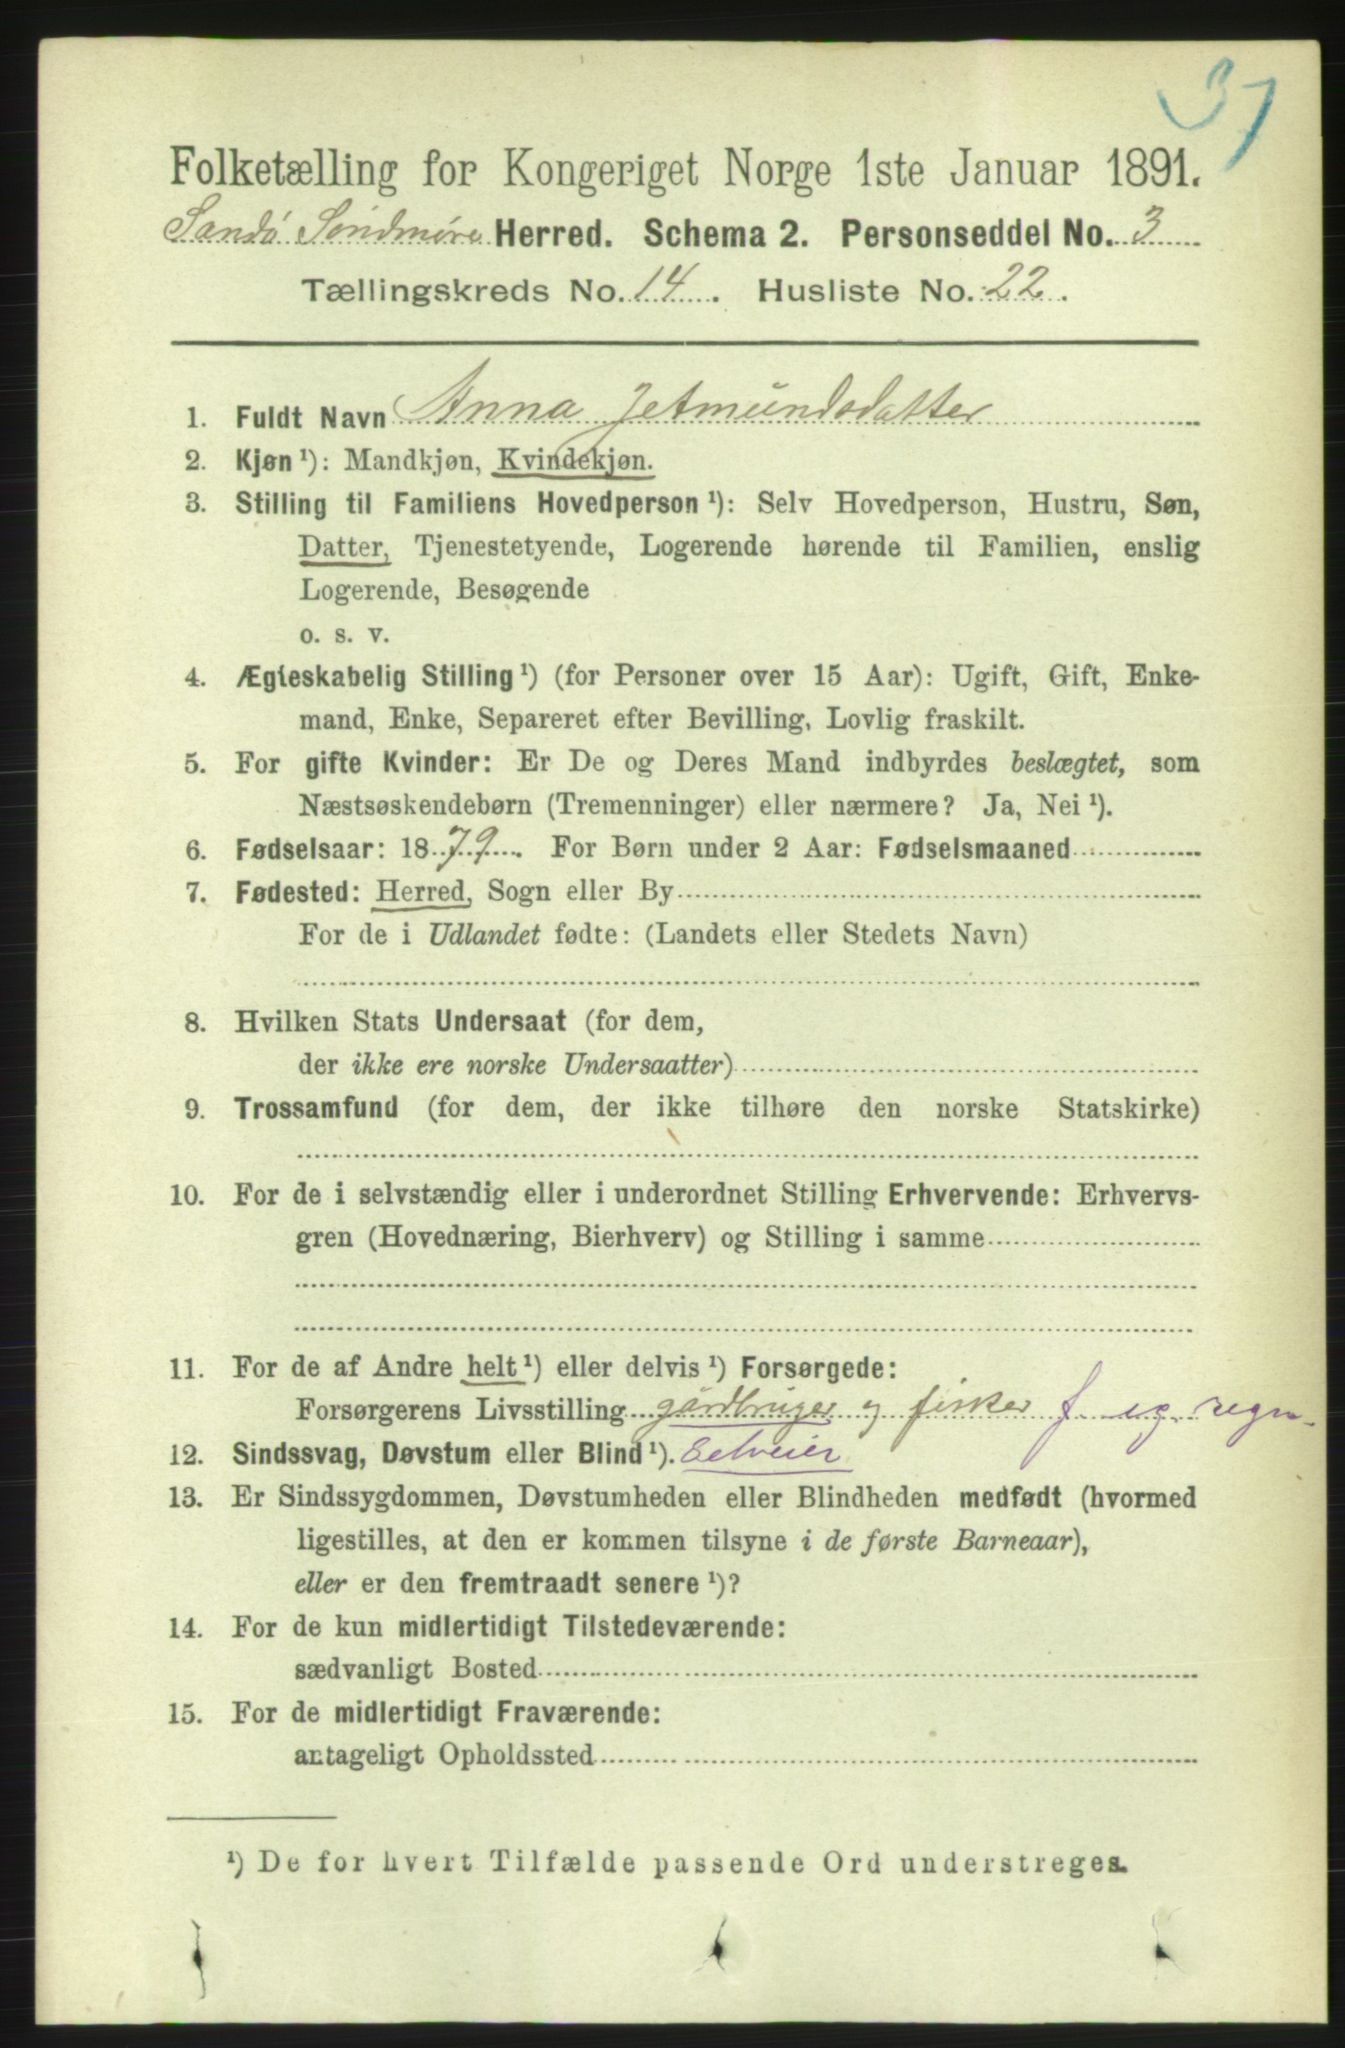 37
Folketælling for Kongeriget Norge 1ste Januar 1891.
Sandø Søndmøre Herred. Schema 2. Personseddel No. 3
Tællingskreds No. 14. Husliste No. 22.
1. Fuldt Navn Anna Jetmundsdatter
2. Kjøn ¹): Mandkjøn, Kvindekjøn.
3. Stilling til Familiens Hovedperson ¹): Selv Hovedperson, Hustru, Søn,
Datter, Tjenestetyende, Logerende hørende til Familien, enslig
Logerende, Besøgende
o. s. v.
4. Ægteskabelig Stilling ¹) (for Personer over 15 Aar): Ugift, Gift, Enke-
mand, Enke, Separeret efter Bevilling, Lovlig fraskilt.
5. For gifte Kvinder: Er De og Deres Mand indbyrdes beslægtet, som
Næstsøskendebørn (Tremenninger) eller nærmere? Ja, Nei ¹).
6. Fødselsaar: 1879. For Børn under 2 Aar: Fødselsmaaned
7. Fødested: Herred, Sogn eller By
For de i Udlandet fødte: (Landets eller Stedets Navn)
8. Hvilken Stats Undersaat (for dem,
der ikke ere norske Undersaatter)
9. Trossamfund (for dem, der ikke tilhøre den norske Statskirke)
10. For de i selvstændig eller i underordnet Stilling Erhvervende: Erhvervs-
gren (Hovednæring, Bierhverv) og Stilling i samme
11. For de af Andre helt ¹) eller delvis ¹) Forsørgede:
Forsørgerens Livsstilling gårdbruger og fisker f. eg. regn.
12. Sindssvag, Døvstum eller Blind ¹). Selveier
13. Er Sindssygdommen, Døvstumheden eller Blindheden medfødt (hvormed
ligestilles, at den er kommen tilsyne i de første Barneaar),
eller er den fremtraadt senere ¹)?
14. For de kun midlertidigt Tilstedeværende:
sædvanligt Bosted
15. For de midlertidigt Fraværende:
antageligt Opholdssted
¹) De for hvert Tilfælde passende Ord understreges.